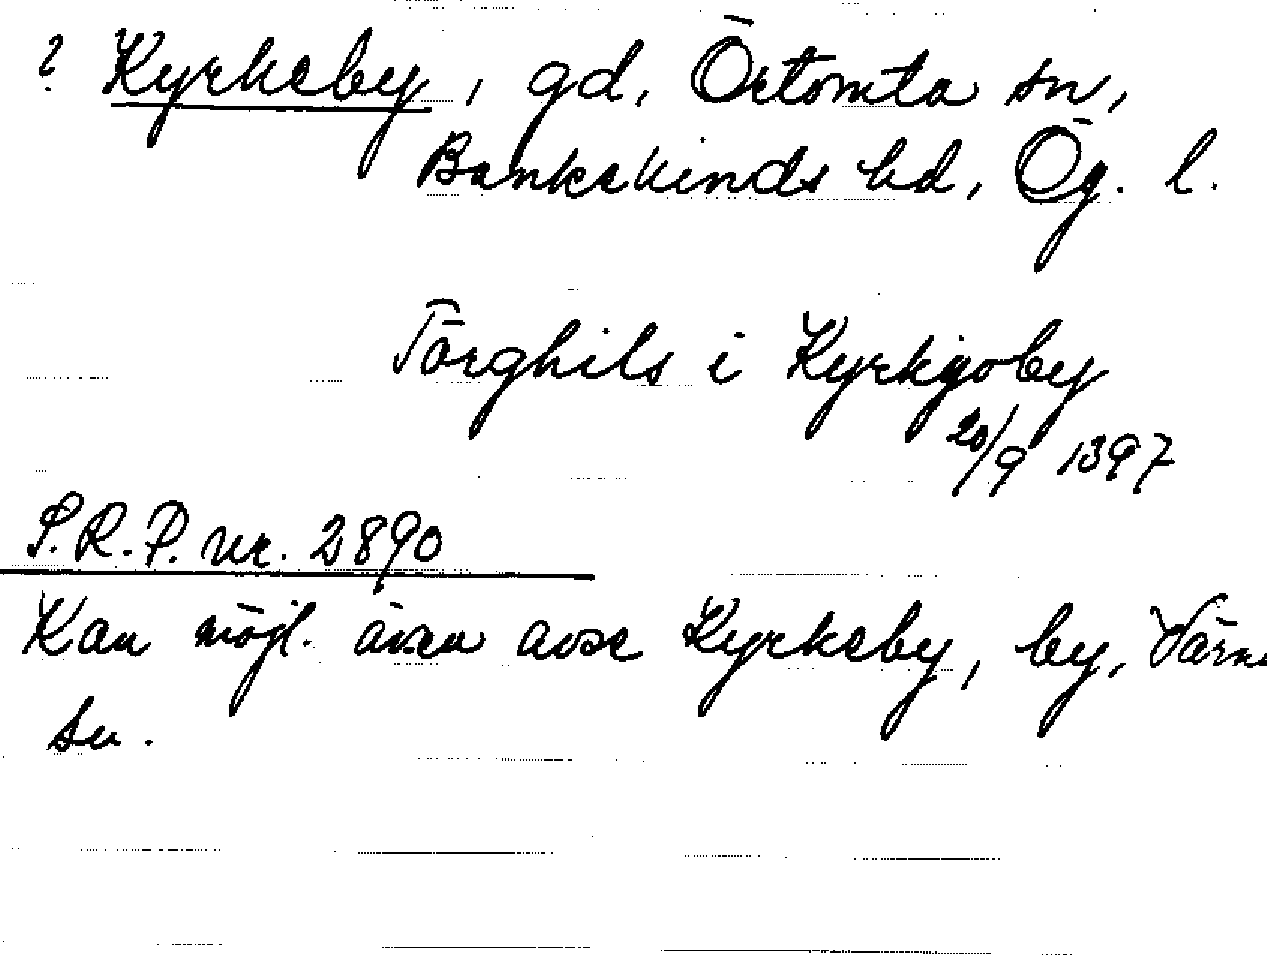 ? Kyrkeby, gd, Örtomta sn,
Bankekinds hd, Ög. l.
Törghils i Kyrkjoby
20/9 1397
S.R.P. nr. 2890
Kan möjl. även avse Kyrkeby, by, Värna
sn.